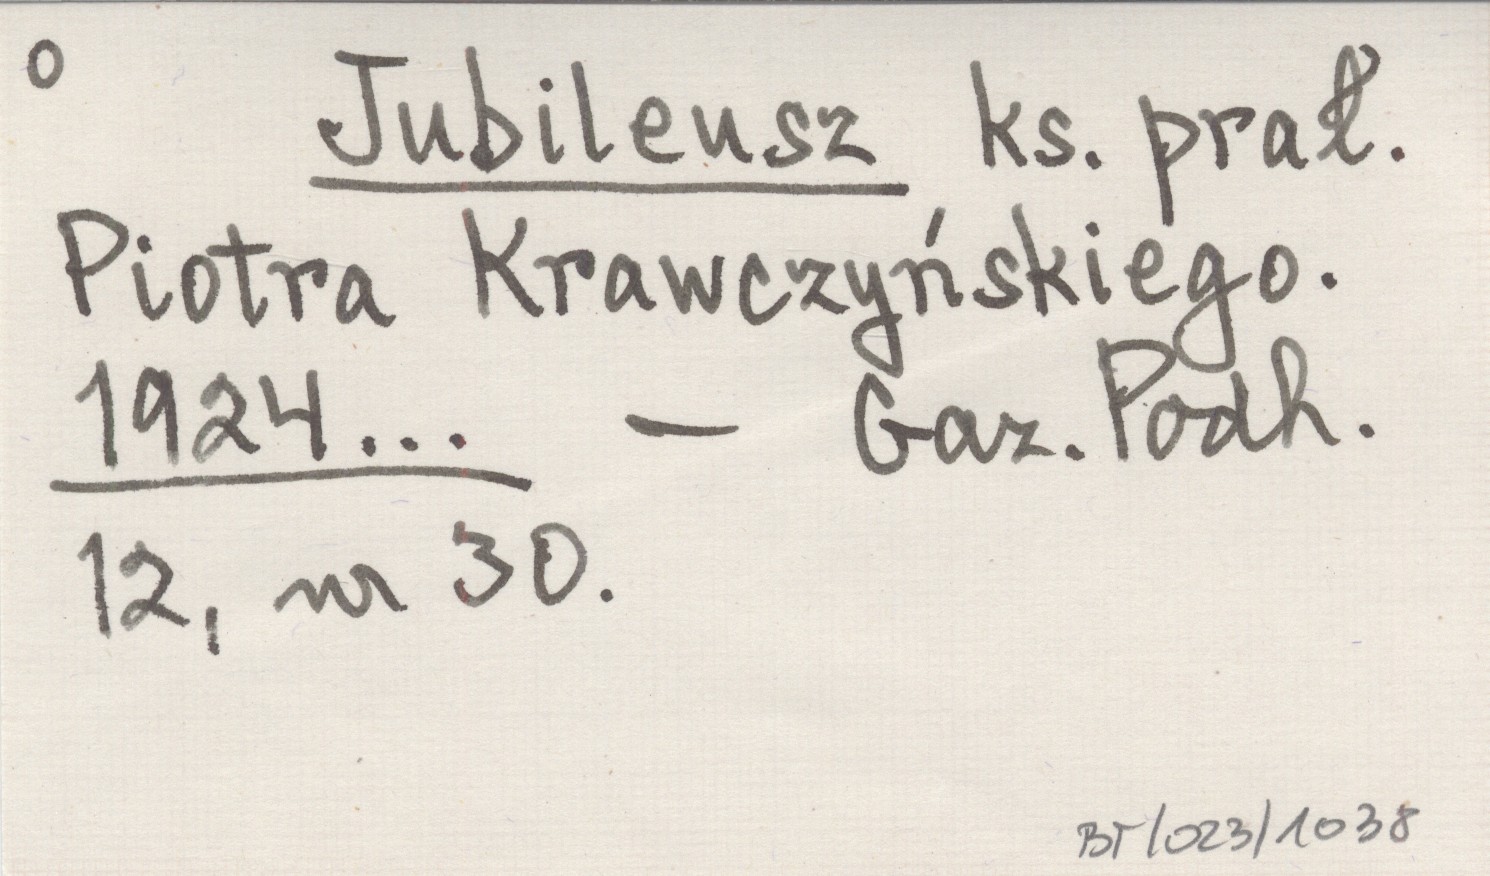 o
Jubileusz ks. prał.
Piotra Krawczyńskiego.
1924... — Gaz. Podh.
12, nr 30.
BT/023/1038